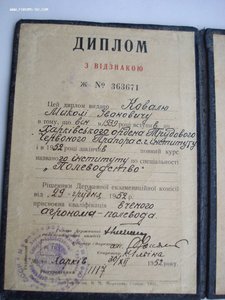 ДИПЛОМ
З ВІДЗНАКОЮ
Ж № 363671
Цей диплом видано Ковалю
Миколі Івановичу
в тому, що він в 1939 році вступив в
Харківського ордена Трудового
Червоного Прапора с.г. інституту
і в 1952 році закінчив повний курс
названого інституту по спеціальності
„Полеводство"
Рішенням Державної екзаменаційної комісії
від 29 грудня 1952 р.
присвоєна кваліфікація вченого
агронома-полевода
Харків 30/XII 1952 року.
Реєстраційний № 1117